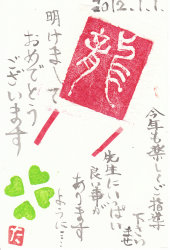 2012.1.1.
龍
明けまして
おめでとう
ございます
今年も楽しくご指導
下さい
ませ
先生にいっぱい
良い事が
あります
ように…
た